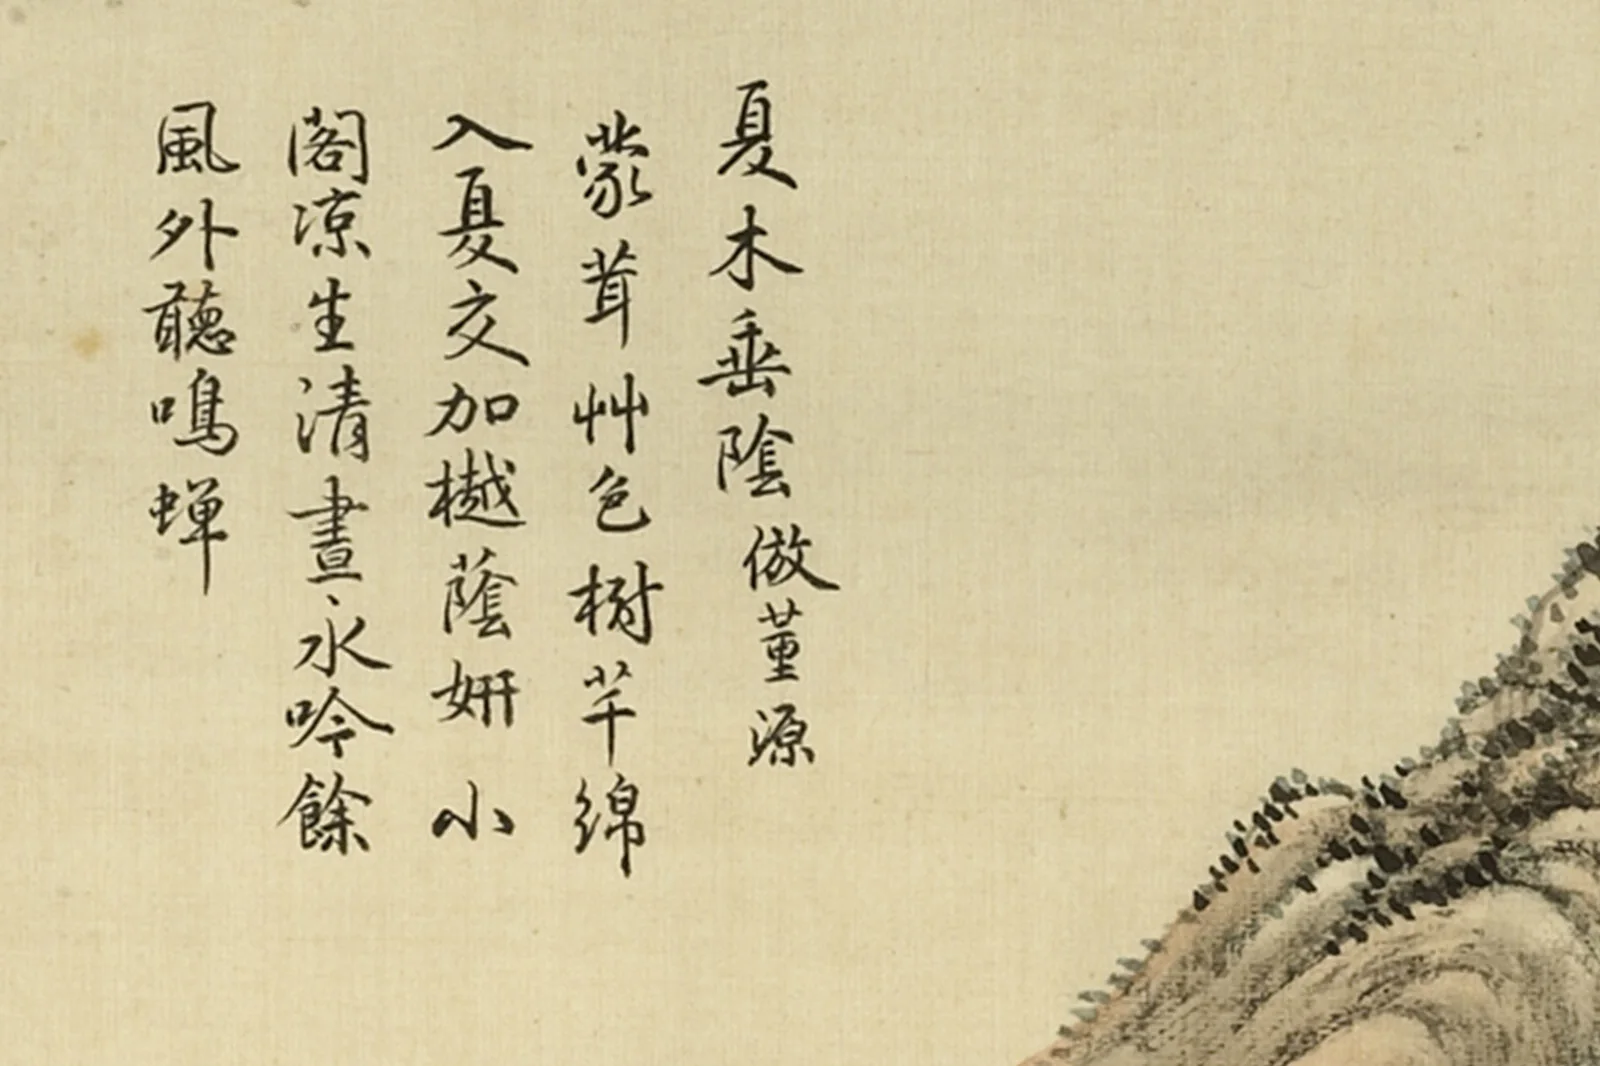 夏木垂陰倣董源
蒙茸艸色樹芊綿
入夏交加樾蔭妍小
閣凉生清晝永吟餘
風外聽鳴蟬